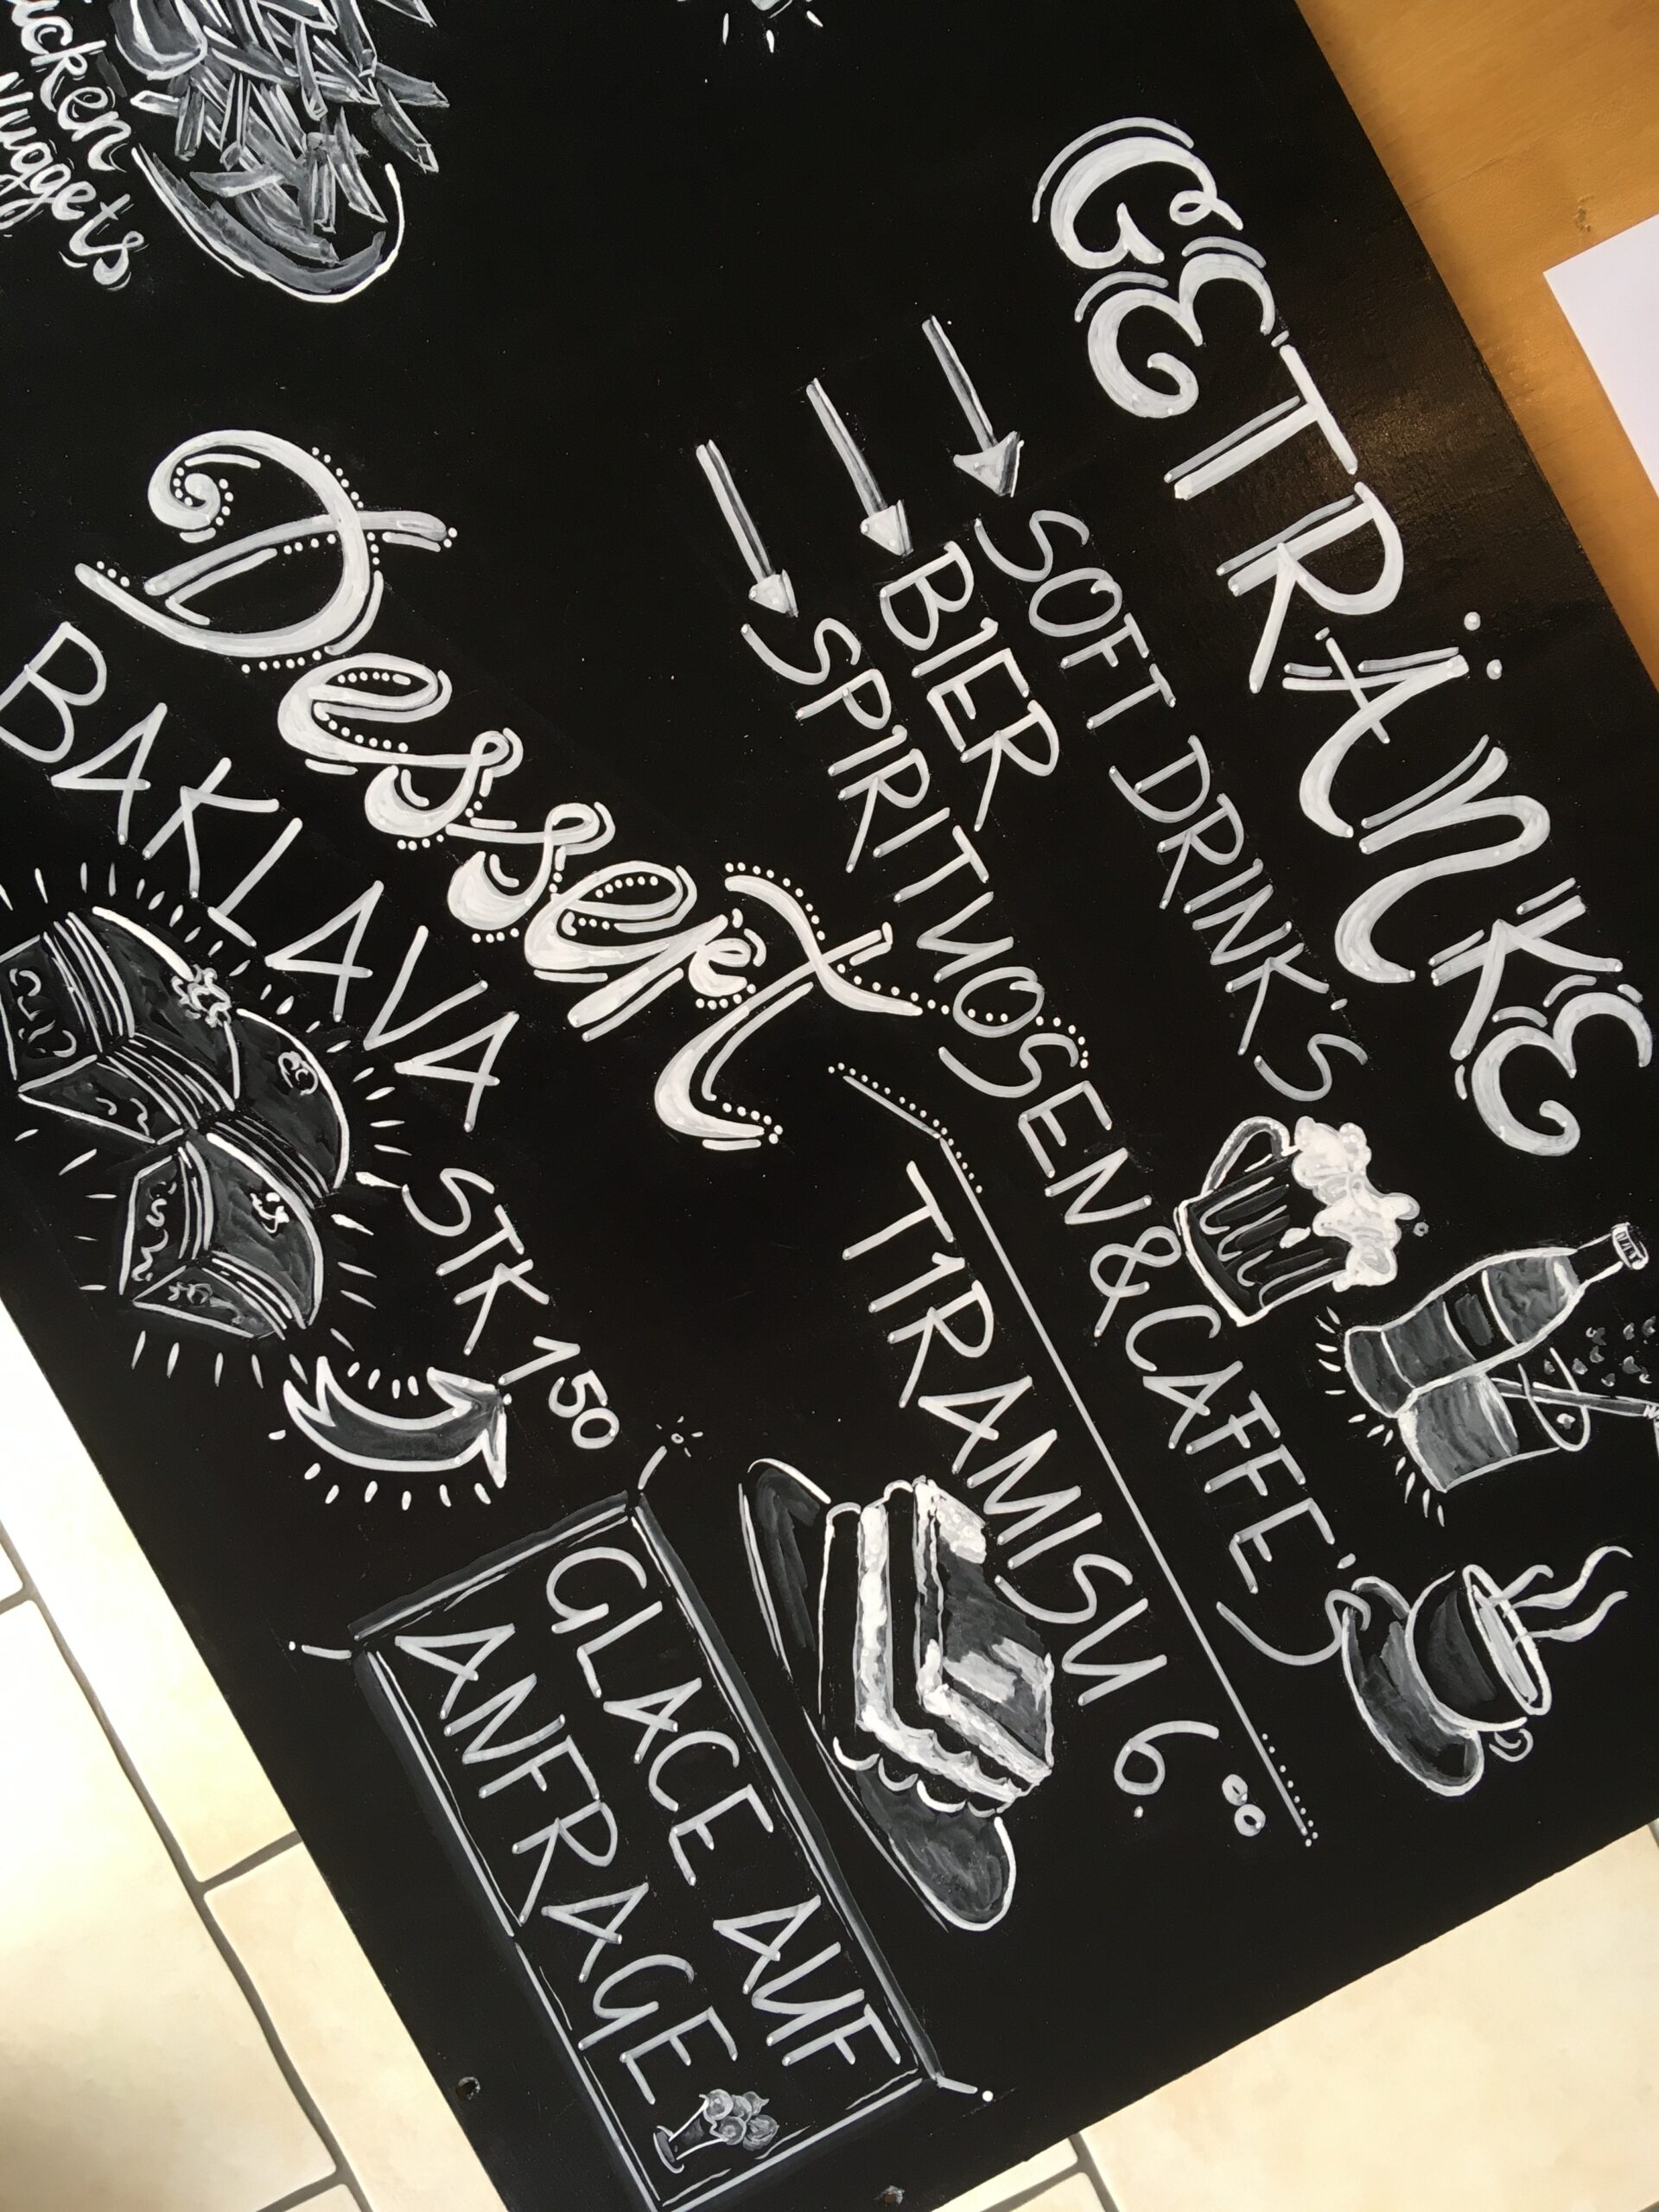 Nuggets
GETRÄNKE
SOFT DRINK'S
BIER
SPIRITUOSEN & CAFFE'S
Dessert
TIRAMISU 6.00
BAKLAVA STK 1 50
GLACE AUF
ANFRAGE